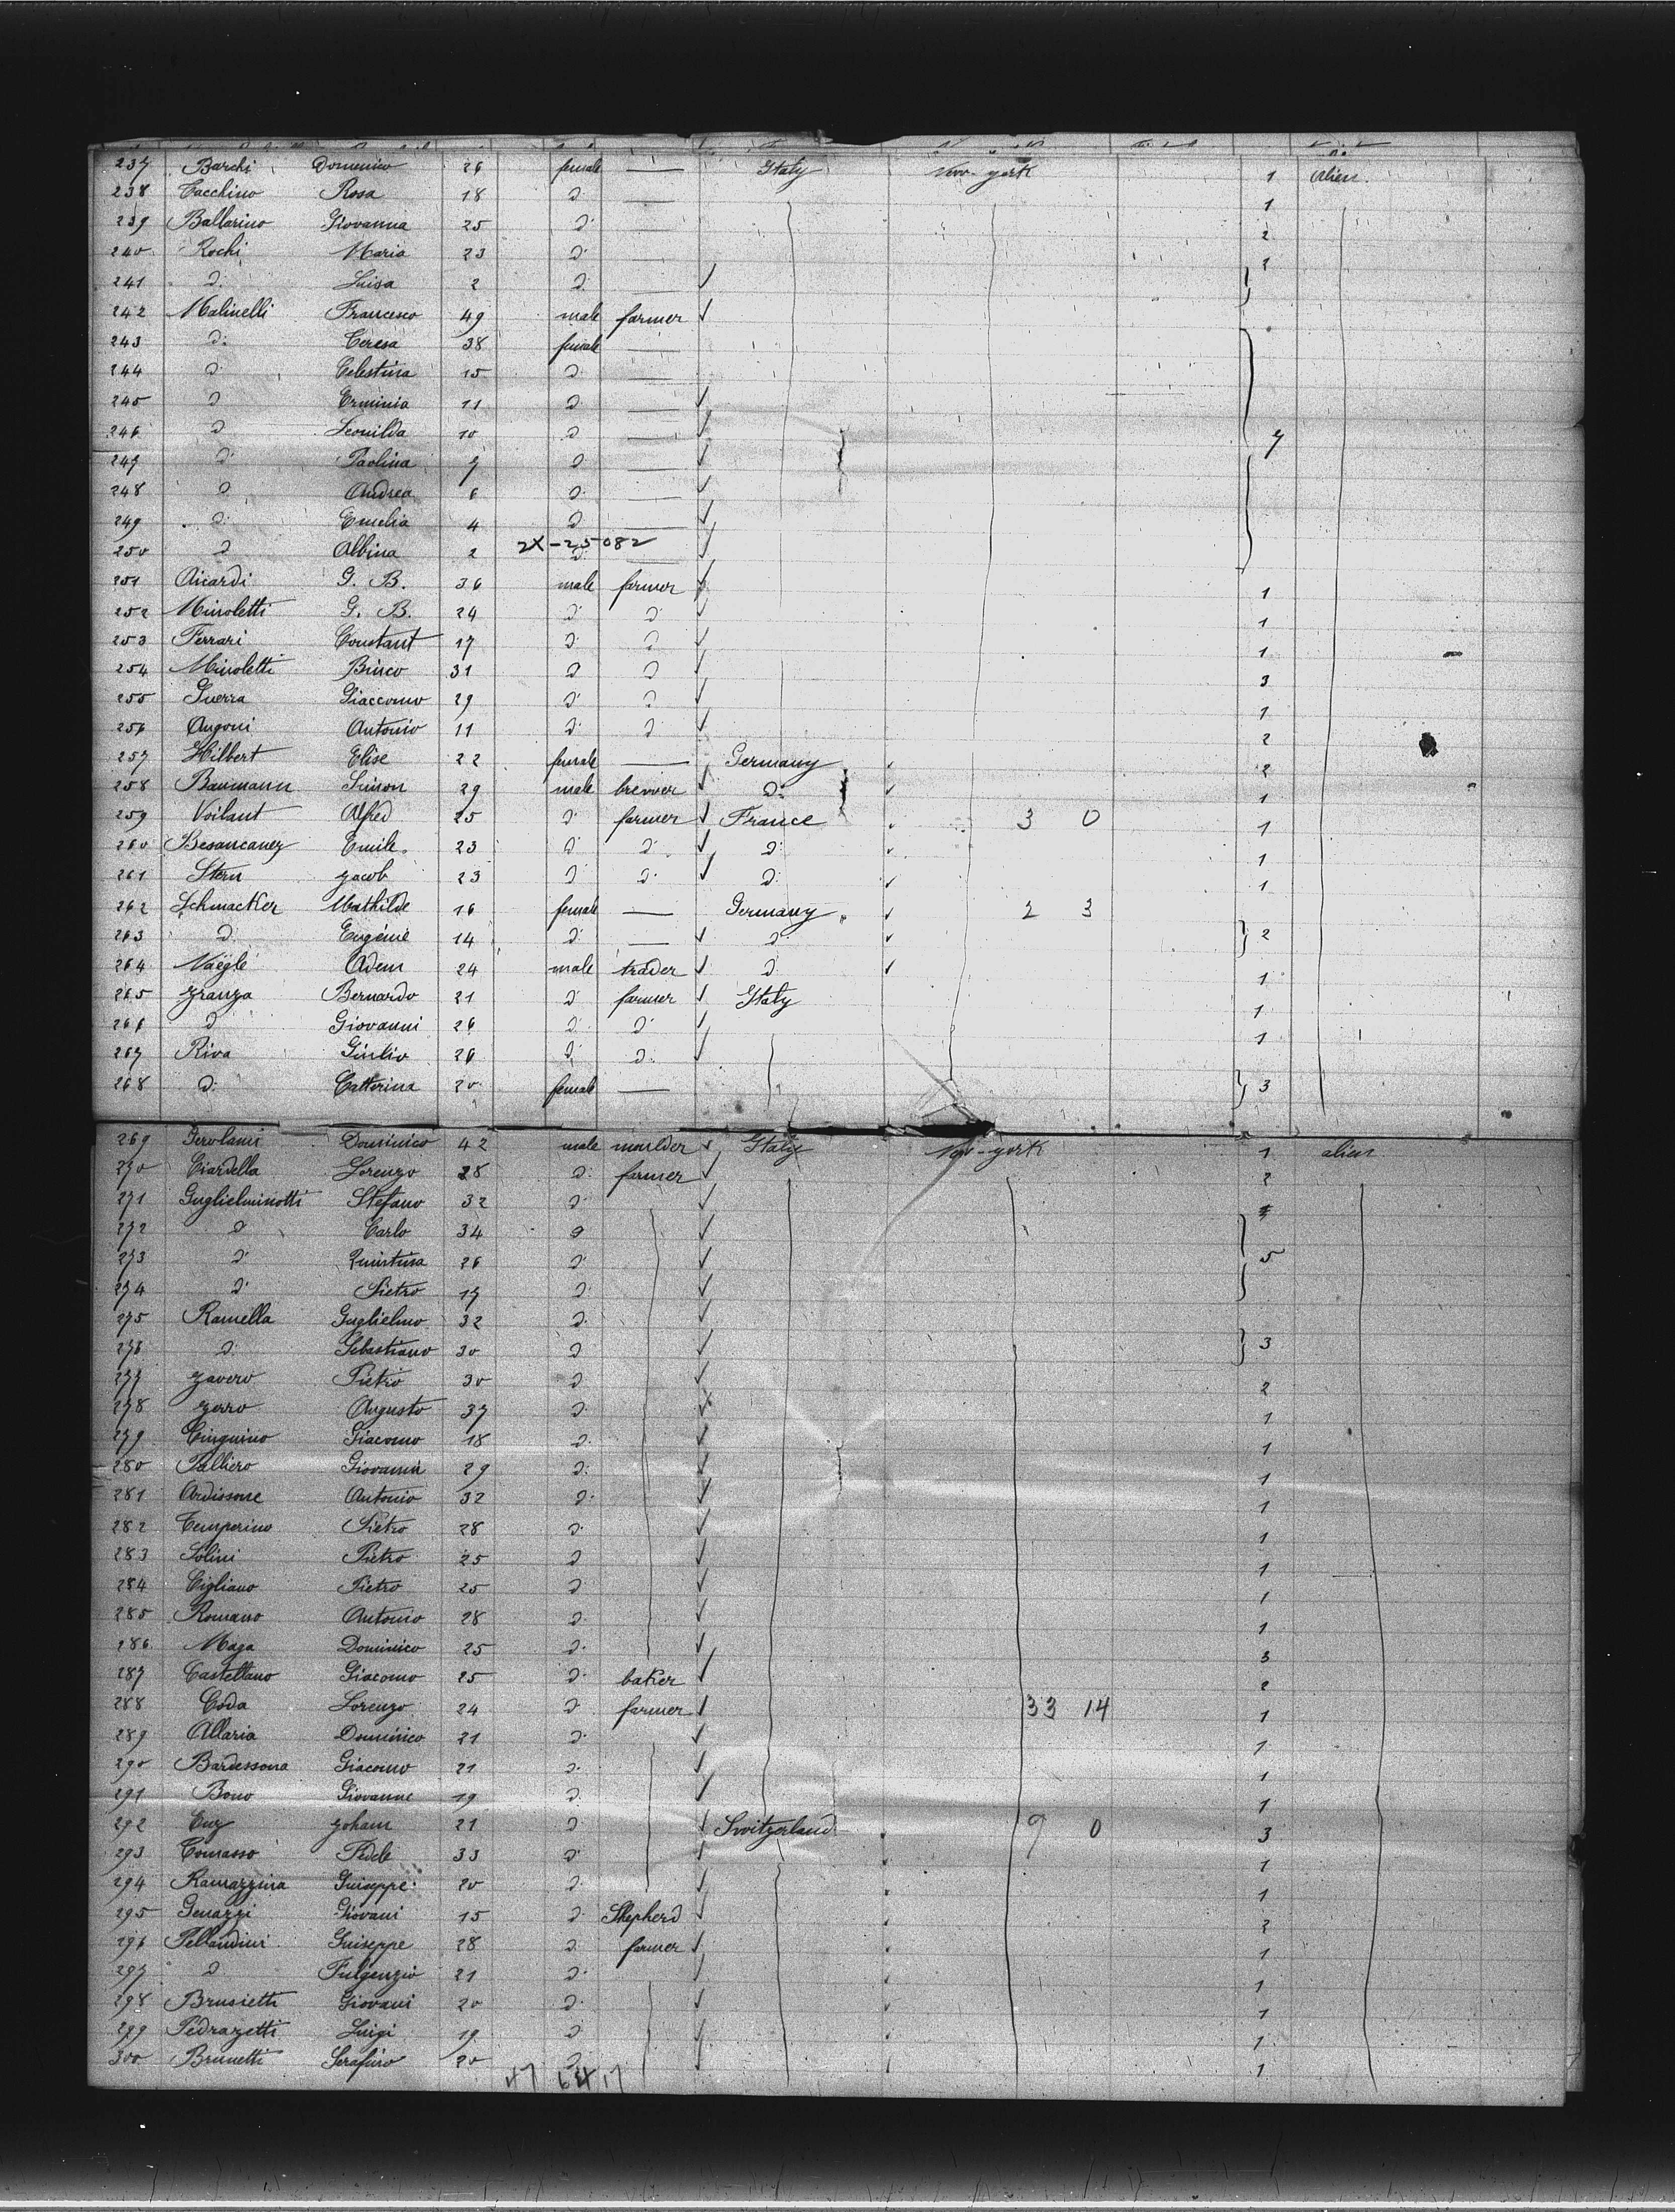 237 Barchi Domenico 26 female — Italy New-york 1 Alien.
238 Cacchino Rosa 18 d: — 1
239 Ballarino Giovanna 25 d: — 2
240 Rochi Maria 23 d: — 2
241 d: Luisa 2 d: —
242 Malinelli Francesco 49 male farmer
243 d: Teresa 38 female —
244 d Celestina 15 d —
245 d Erminia 11 d —
246 d Leonilda 10 d — 7
247 d: Paolina 7 d —
248 d Andrea 6 d: —
249 d: Emelia 4 d —
250 d Albina 2 2X-25082 d —
251 Aicardi G. B. 36 male farmer 1
252 Minoletti G. B. 24 d: d: 1
253 Ferrari Constant 17 d: d 1
254 Minoletti Binco 31 d d 3
255 Guerra Giaccomo 29 d: d 1
256 Angoni Antonio 11 d: d: 2
257 Hilbert Elise 22 female — Germany 2
258 Baumann Simon 29 male brewer d: 1
259 Voilant Alfred 25 d: farmer France 3 0 1
260 Besancanez Emile. 23 d: d: d: 1
261 Stern Jacob 23 d: d: d: 1
262 Schmacker Mathilde 16 female — Germany 2 3
263 d: Eugénie 14 d: — d: 2
264 Naëglé Adem 24 male trader d: 1
265 Franza Bernardo 21 d: farmer Italy 1
266 d Giovanni 26 d: d: 1
267 Riva Giulio 26 d: d:
268 d: Catterina 20 female — 3
269 Gerolami Dominico 42 male moulder Italy New-york 1 alien
270 Ciardella Lorenzo 28 d: farmer 2
271 Guglielminotti Stefano 32 d:
272 d Carlo 34 d
273 d: Quintina 26 d: 5
274 d: Pietro 17 d:
275 Ramella Guglielmo 32 d:
276 d: Sebastiano 30 d 3
277 Zavero Pietro 30 d 2
278 Zorro Augusto 37 d: 1
279 Cinguino Giacomo 18 d: 1
280 Palliero Giovanni 29 d: 1
281 Ardissone Antonio 32 d: 1
282 Temperino Pietro 28 d: 1
283 Solini Pietro 25 d 1
284 Cigliano Pietro 25 d 1
285 Romano Antonio 28 d: 1
286 Maga Dominico 25 d: 3
287 Castellano Giacomo 25 d: baker 2
288 Coda Lorenzo 24 d: farmer 33 14 1
289 Allaria Dominico 21 d: 1
290 Bardessona Giacomo 21 d: 1
291 Bono Giovanne 19 d: 1
292 Enz Johann 21 d Switzerland 9 0 3
293 Tomasso Fedele 33 d: 1
294 Ramazzina Guiseppe 20 d: 1
295 Genazzi Giovani 15 d: Shepherd 2
296 Pellandini Guiseppe 28 d: farmer 1
297 d: Fulgenzio 21 d: 1
298 Brusietti Giovani 20 d: 1
299 Pedrazetti Luigi 19 d 1
300 Brunetti Serafino 20 d: 1
47 64 17